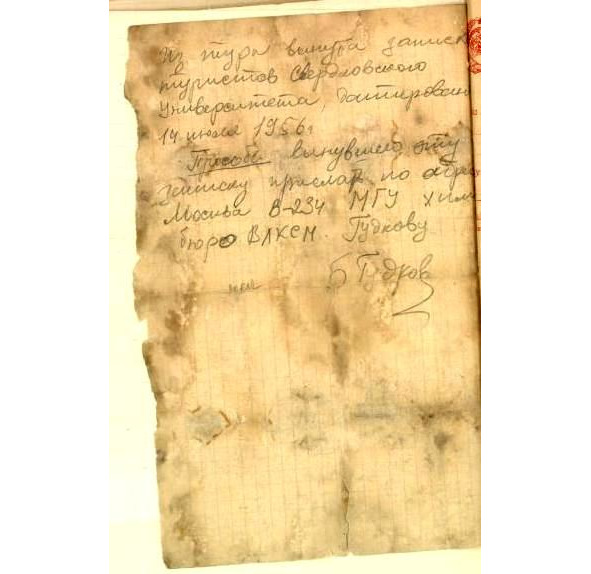 Из тура вынута записк
туристов Свердловского
Университета, датирован
14 июля 1956г
Просьба вынувшего эту
записку прислать по адре
Москва В-234 МГУ Хим
бюро ВЛКСМ. Гудкову
Б Гудков